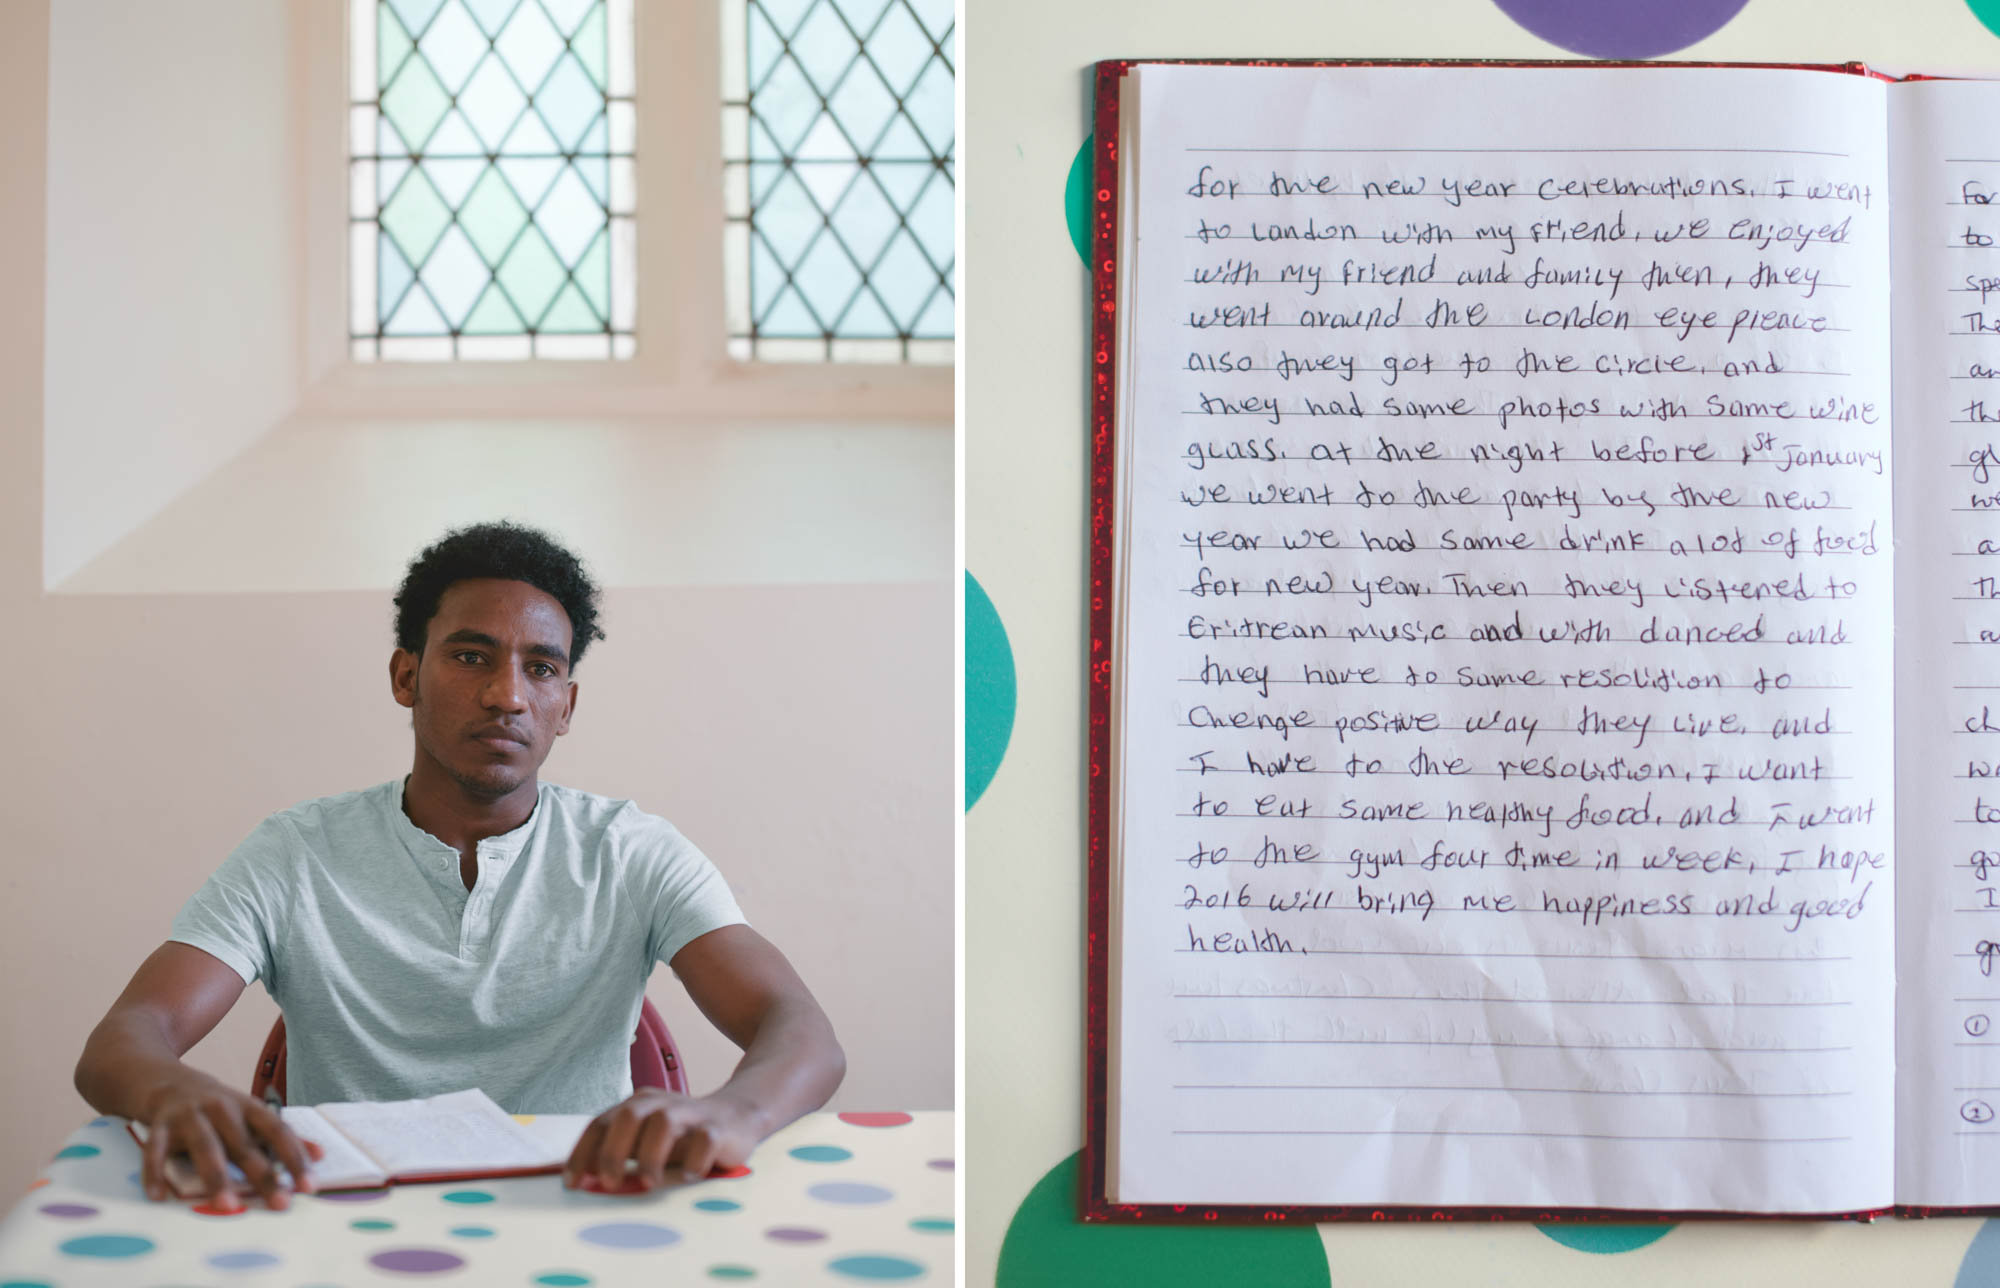 for the new year cerebrations, I went
to London with my friend, we enjoyed
with my friend and family then, they
went around the London eye pieace
also they got to the circle, and
they had same photos with same wine
glass. at the night before 1st January
we went to the party by the new
year we had same drink a lot of food
for new year. Then they listened to
Eritrean music and with danced and
they have to same resolition to
Chenge positive way they live. and
I have to the resolition, I want
to eat same healthy food. and I went
to the gym four time in week, I hope
2016 will bring me happiness and good
health.
For
to
spe
The
an
the
gl
we
a
Th
a
ch
wa
to
go
I
go
①
②